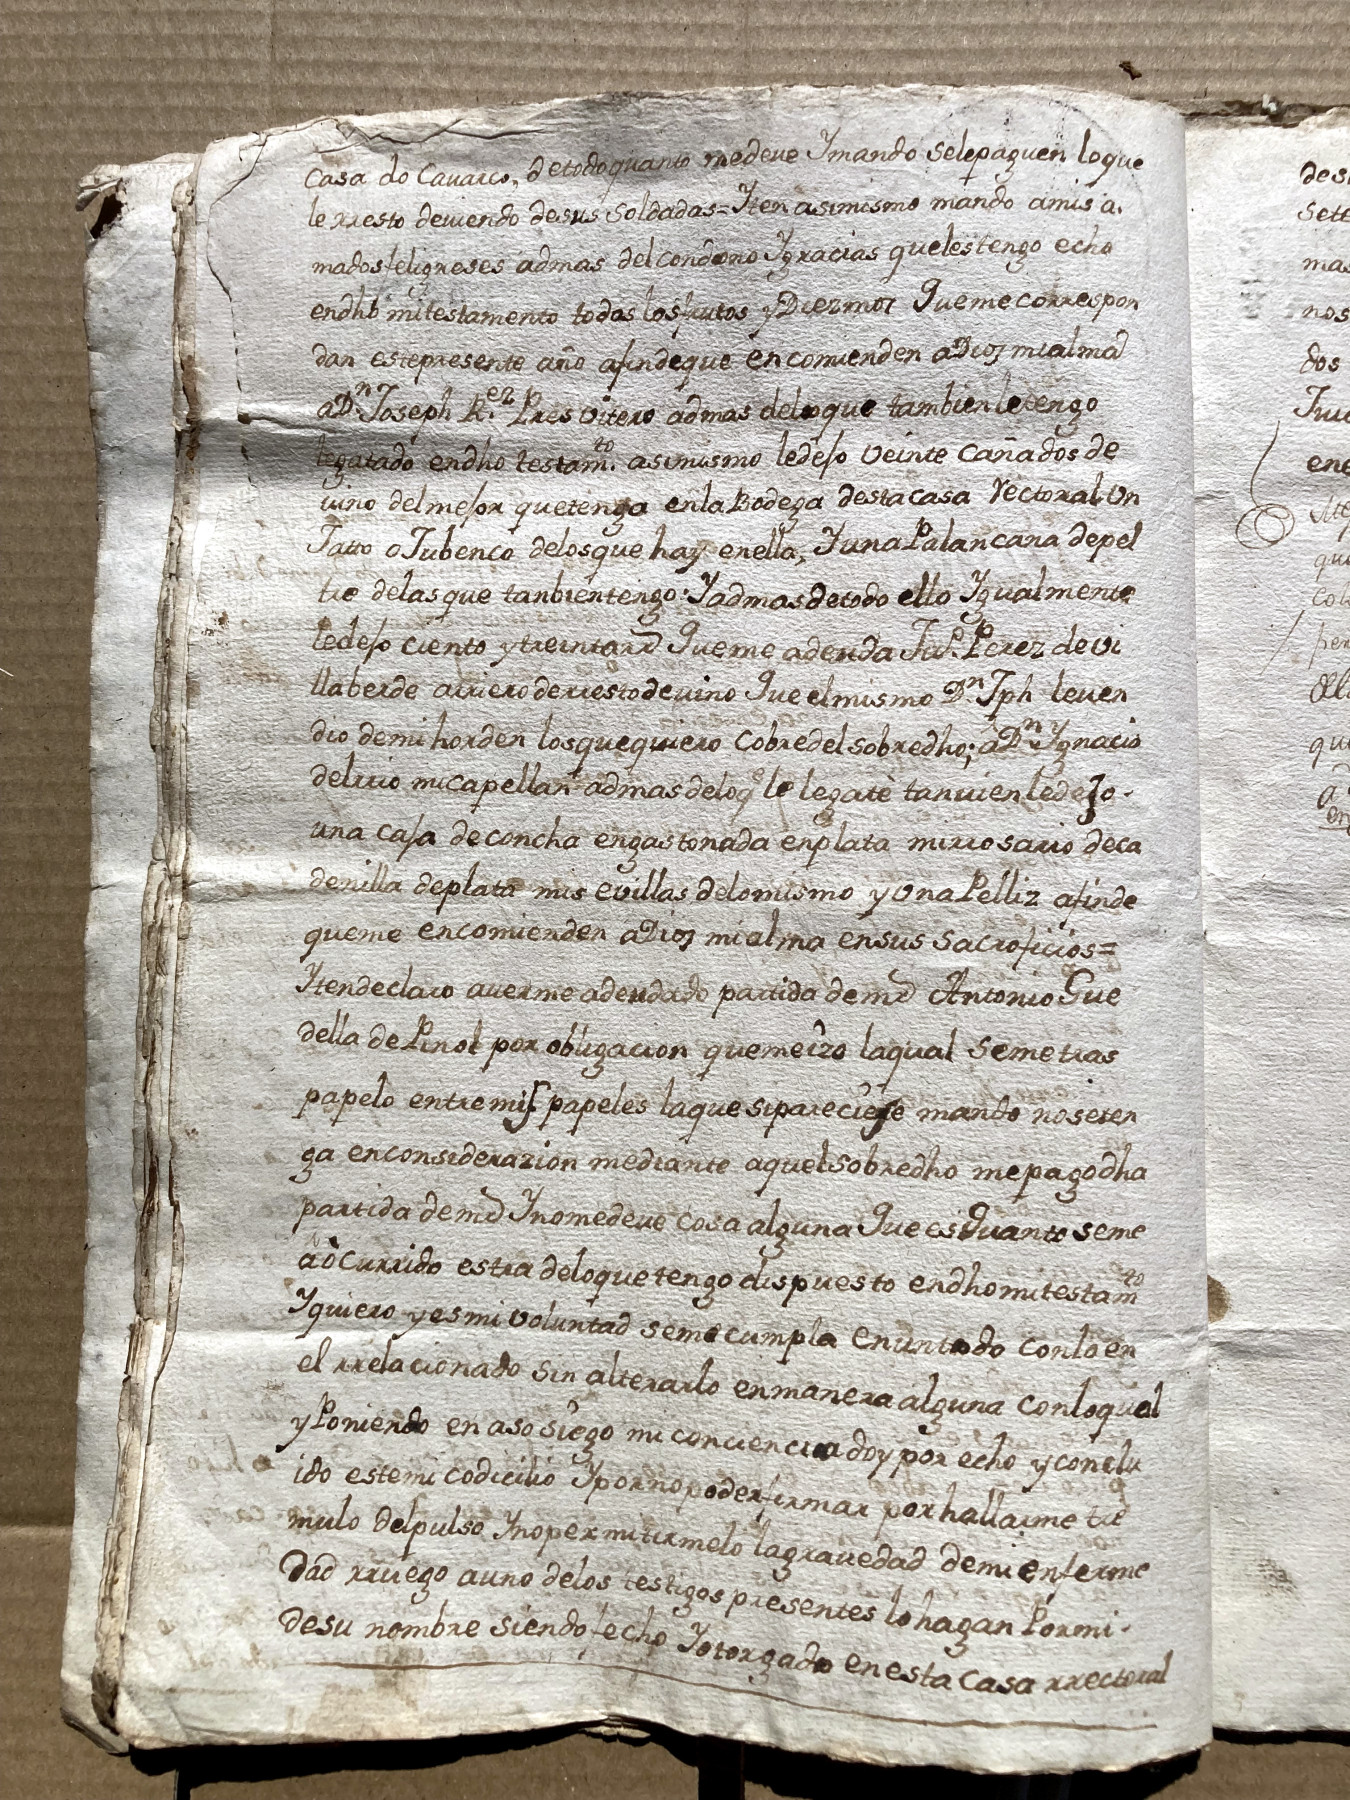 casa do Cavarco, de todo quanto me deve Y mando se le paguen lo que
le rresto deviendo de sus soldadas = Yten asimismo mando a mis a.
mados feligreses admas del condono Y gracias que les tengo echo
en dho mi testamento todas los frutos y Diezmos Que me correspon
dan este presente año afin de que encomienden a Dios mi alma
a Dn. Joseph R.ez Presvitero admas de lo que tambien le tengo
legatado en dho testam.to asimismo le dejo veinte cañados de
vino del mejor que tenga en la Bodega desta casa Rectoral Un
Jarro o Jubenco de los que hay en ella, Y una Palancana de pel
tre de las que tanbien tengo: Y admas de todo ello Ygualmente
le dejo ciento y treinta rrs Que me adeuda Ju.º Perez de Vi
llaberde arriero de rresto de vino Que el mismo Dn. Jph le ven
dio de mi horden los que quiero cobre del sobredho; a Dn. Ygnacio
del rio mi capellan admas de lo q.e le legatè tanvien le dejo.
una caja de concha engastonada en plata mi rrosario de ca
denilla de plata mis evillas de lo mismo y Una Pelliz afin de
que me encomienden a Dios mi alma en sus sacroficios =
Yten declaro averme adeudado partida de mrs Antonio Gue
della de Pinol por obligacion que me izo la qual se me tras
papelo entre mis papeles la que si pareciese mando no se ten
ga en considerazion mediante aquel sobredho me pago dha
partida de mrs Y no me deve cosa alguna Que es Quanto se me
a ôcurrido estra de lo que tengo dispuesto en dho mi testam.to
Y quiero y es mi voluntad se me cumpla en un todo con lo en
el rrelacionado sin alterarlo en manera alguna con lo qual
y Poniendo en asosiego mi conciencia doy por echo y conclu
ido este mi codicilio Y por no poder firmar por hallarme tre
mulo del pulso Y no permitirmelo la gravedad de mi enferme
Dad rruego a uno de los testigos presentes lo hagan Por mi.
De su nombre siendo fecho Y otorgado en esta casa rrectoral